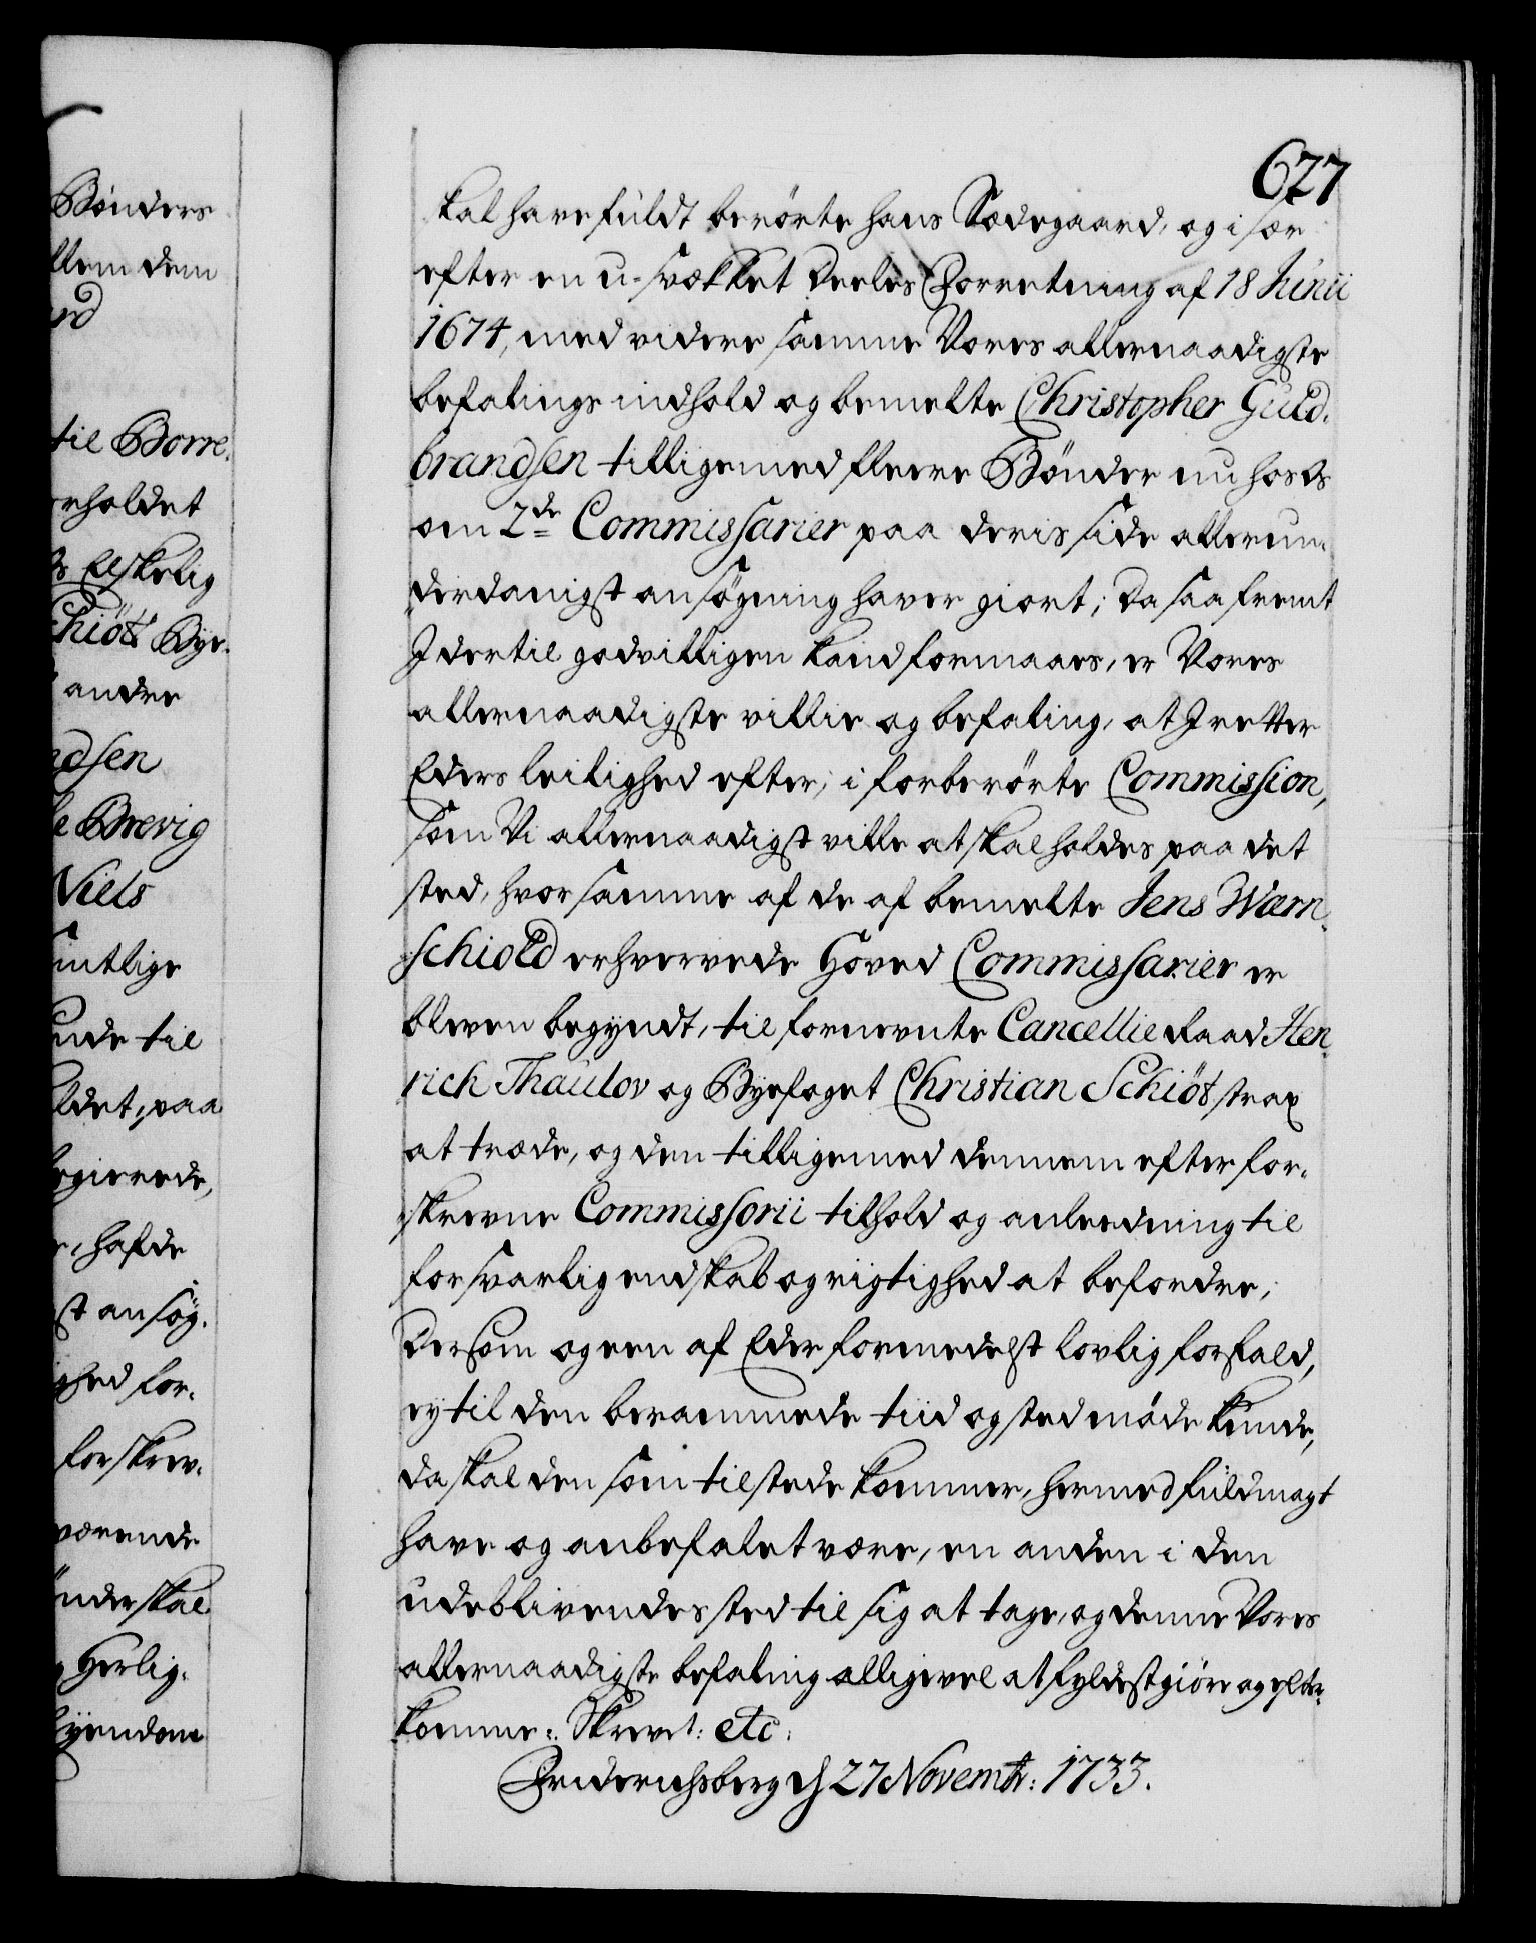 Bønders
llem dem
rd
til Borre-
erholdet
s Elskelig
chiöt Bye-
andre
ndsen
le Brevig
Niels
mtlige
unde til
ldet, paa
egierede,
r, hafde
st ansøg-
ghed for-
forskrev-
værende
ünder skal
Herlig-
Eyendom
677
skal have fuldt berørte hans Sædegaard, og i sær
efter en u-svækket Deeles Forretning af 18 Junii
1674, med videre samme Vores allernaadigste
befalings indhold og bemelte Christopher Guld-
brandsen tilligemed fleere Bønder nu hos Os
om 2de Commissarier paa deris side allerun-
derdanigst ansøgning haver giort; Da saafremt
I dertil godvilligen kand formaaes, er Vores
allernaadigste villie og befaling, at I retter
Eders leilighed efter, i forberørte Commission,
som Vi allernaadigst ville at skal holdes paa det
sted, hvor samme af de af bemelte Jens Wærn-
schiold erhvervede Hoved Commissarier er
bleven begyndt, til fornevnte Cancellie Raad Hen-
rich Thaulov og Byefoget Christian Schiöt strax
at træde, og den tilligemed dennem efter for-
skrevne Commissorii tilhold og anleedning til
forsvarlig endskab og rigtighed at befordre;
Dersom og een af Eder formedelst lovlig forfald,
ey til den berammede tiid og sted møde kunde,
da skal den som tilstede kommer, hermed fuldmagt
have og anbefalet være, en anden i den
udeblivendes sted til sig at tage, og denne Vores
allernaadigste befaling alligevel at fyldestgiøre og efter-
komme. Skrevet: etc:
Friderichsberg d 27 Novembr: 1733.